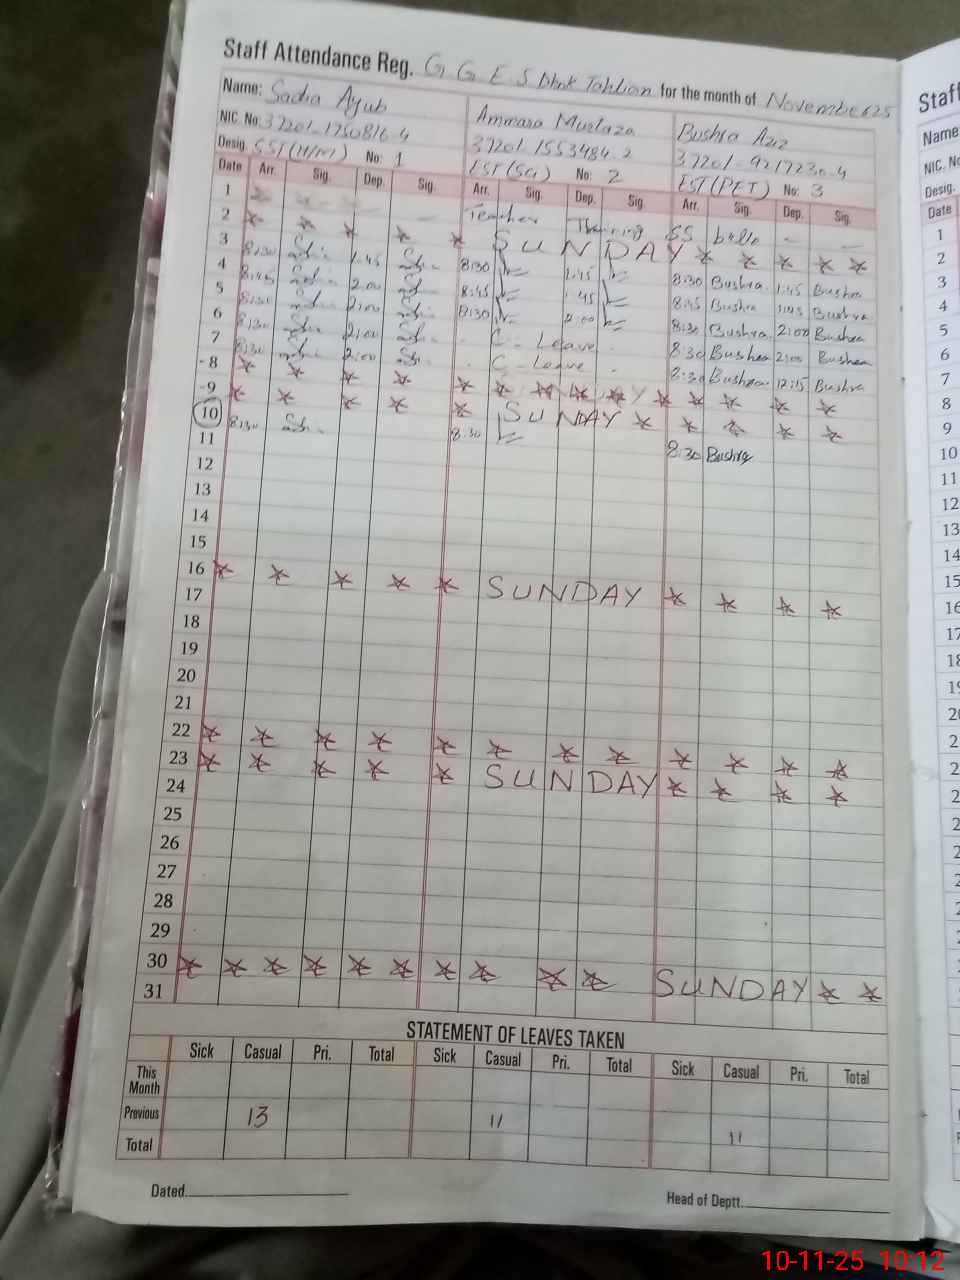 Staff Attendance Reg. G G E S Dhok Tahlian for the month of November 25
Name: Sadia Ayub Ammara Murtaza Bushra Aziz
NIC. No: 37201-1750816-4 37201-1553484-2 37201-9217230-4
Desig. SST(H/M) No: 1 EST(Sci) No: 2 EST(PET) No: 3
Date Arr. Sig. Dep. Sig. Arr. Sig. Dep. Sig. Arr. Sig. Dep. Sig.
1 Teacher Training
2 SUNDAY
3 8:30 1:45 8:30 1:45 8:30 Bushra 1:45 Bushra
4 8:45 2:00 8:45 1:45 8:45 Bushra 1:45 Bushra
5 8:30 2:00 8:30 2:00 8:30 Bushra 2:00 Bushra
6 8:30 2:00 C-Leave 8:30 Bushra 2:00 Bushra
7 8:30 2:00 C-Leave 8:30 Bushra 12:15 Bushra
8
9 SUNDAY
10 8:30 8:30 8:30 Bushra
11
12
13
14
15
16 SUNDAY
17
18
19
20
21
22
23 SUNDAY
24
25
26
27
28
29
30 SUNDAY
31
STATEMENT OF LEAVES TAKEN
Sick Casual Pri. Total Sick Casual Pri. Total Sick Casual Pri. Total
This Month
Previous 13 11 11
Total
Dated. Head of Deptt.
Staff
Name
NIC. No
Desig.
Date
1
2
3
4
5
6
7
8
9
10
11
12
13
14
15
16
17
10-11-25 10:12